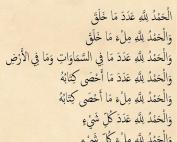 الْحَمْدُ لِلَّهِ عَدَدَ مَا خَلَقَ
وَالْحَمْدُ لِلَّهِ مِلْءَ مَا خَلَقَ
وَالْحَمْدُ لِلَّهِ عَدَدَ مَا فِي السَّمَاوَاتِ وَمَا فِي الْأَرْضِ
وَالْحَمْدُ لِلَّهِ عَدَدَ مَا أَحْصَى كِتَابُهُ
وَالْحَمْدُ لِلَّهِ مِلْءَ مَا أَحْصَى كِتَابُهُ
وَالْحَمْدُ لِلَّهِ عَدَدَ كُلِّ شَيْءٍ
وَالْحَمْدُ لِلَّهِ مِلْءَ كُلِّ شَيْءٍ